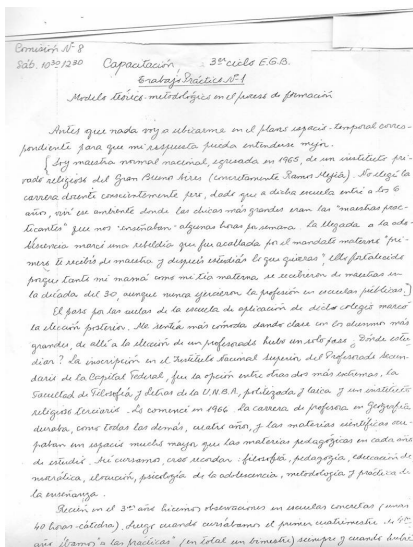 Comisión Nº 8
Sáb. 10³⁰ 12³⁰ Capacitación 3er ciclo E.G.B.
Trabajo Práctico Nº 1
Modelo teórico-metodológico en el proceso de formación
Antes que nada voy a ubicarme en el plano espacio-temporal corres-
pondiente para que mi respuesta pueda entenderse mejor.
[Soy maestra normal nacional, egresada en 1965, de un instituto pri-
vado religioso del Gran Buenos Aires (concretamente Ramos Mejía). No elegí la
carrera docente conscientemente pero, dado que a dicha escuela entré a los 6
años, viví en ambiente donde las chicas más grandes eran las "maestras prac-
ticantes" que nos enseñaban algunas horas por semana. La llegada a la ado-
lescencia marcó una rebeldía que fue acallada por el mandato materno "pri-
mero te recibís de maestra y después estudiás lo que quieras". Ello fortalecido
porque tanto mi mamá como mi tía materna se recibieron de maestras en
la década del 30, aunque nunca ejercieron la profesión en escuelas públicas.]
El paso por las aulas de la escuela de aplicación de dicho colegio marcó
la elección posterior. Me sentía más cómoda dando clase con los alumnos más
grandes, de allí a la elección de un profesorado hubo un solo paso. ¿Dónde estu-
diar? La inscripción en el Instituto Nacional Superior del Profesorado Secun-
dario de la Capital Federal, fue la opción entre otras dos más extremas, la
Facultad de Filosofía y Letras de la U.N.B.A, politizada y laica y un instituto
religioso terciario. Lo comencé en 1966. La carrera de profesora en Geografía
duraba, como todas las demás, cuatro años, y las materias científicas ocu-
paban un espacio mucho mayor que las materias pedagógicas en cada año
de estudio. Así cursamos, creo recordar: filosofía, pedagogía, educación de
neurótica, elocución, psicología de la adolescencia, metodología y práctica de
la enseñanza.
Recién en el 3er año hicimos observaciones en escuelas concretas (unas
40 horas-cátedra). Luego cuando cursábamos el primer cuatrimestre de 4to
año íbamos "a las prácticas" (en total un bimestre) siempre y cuando